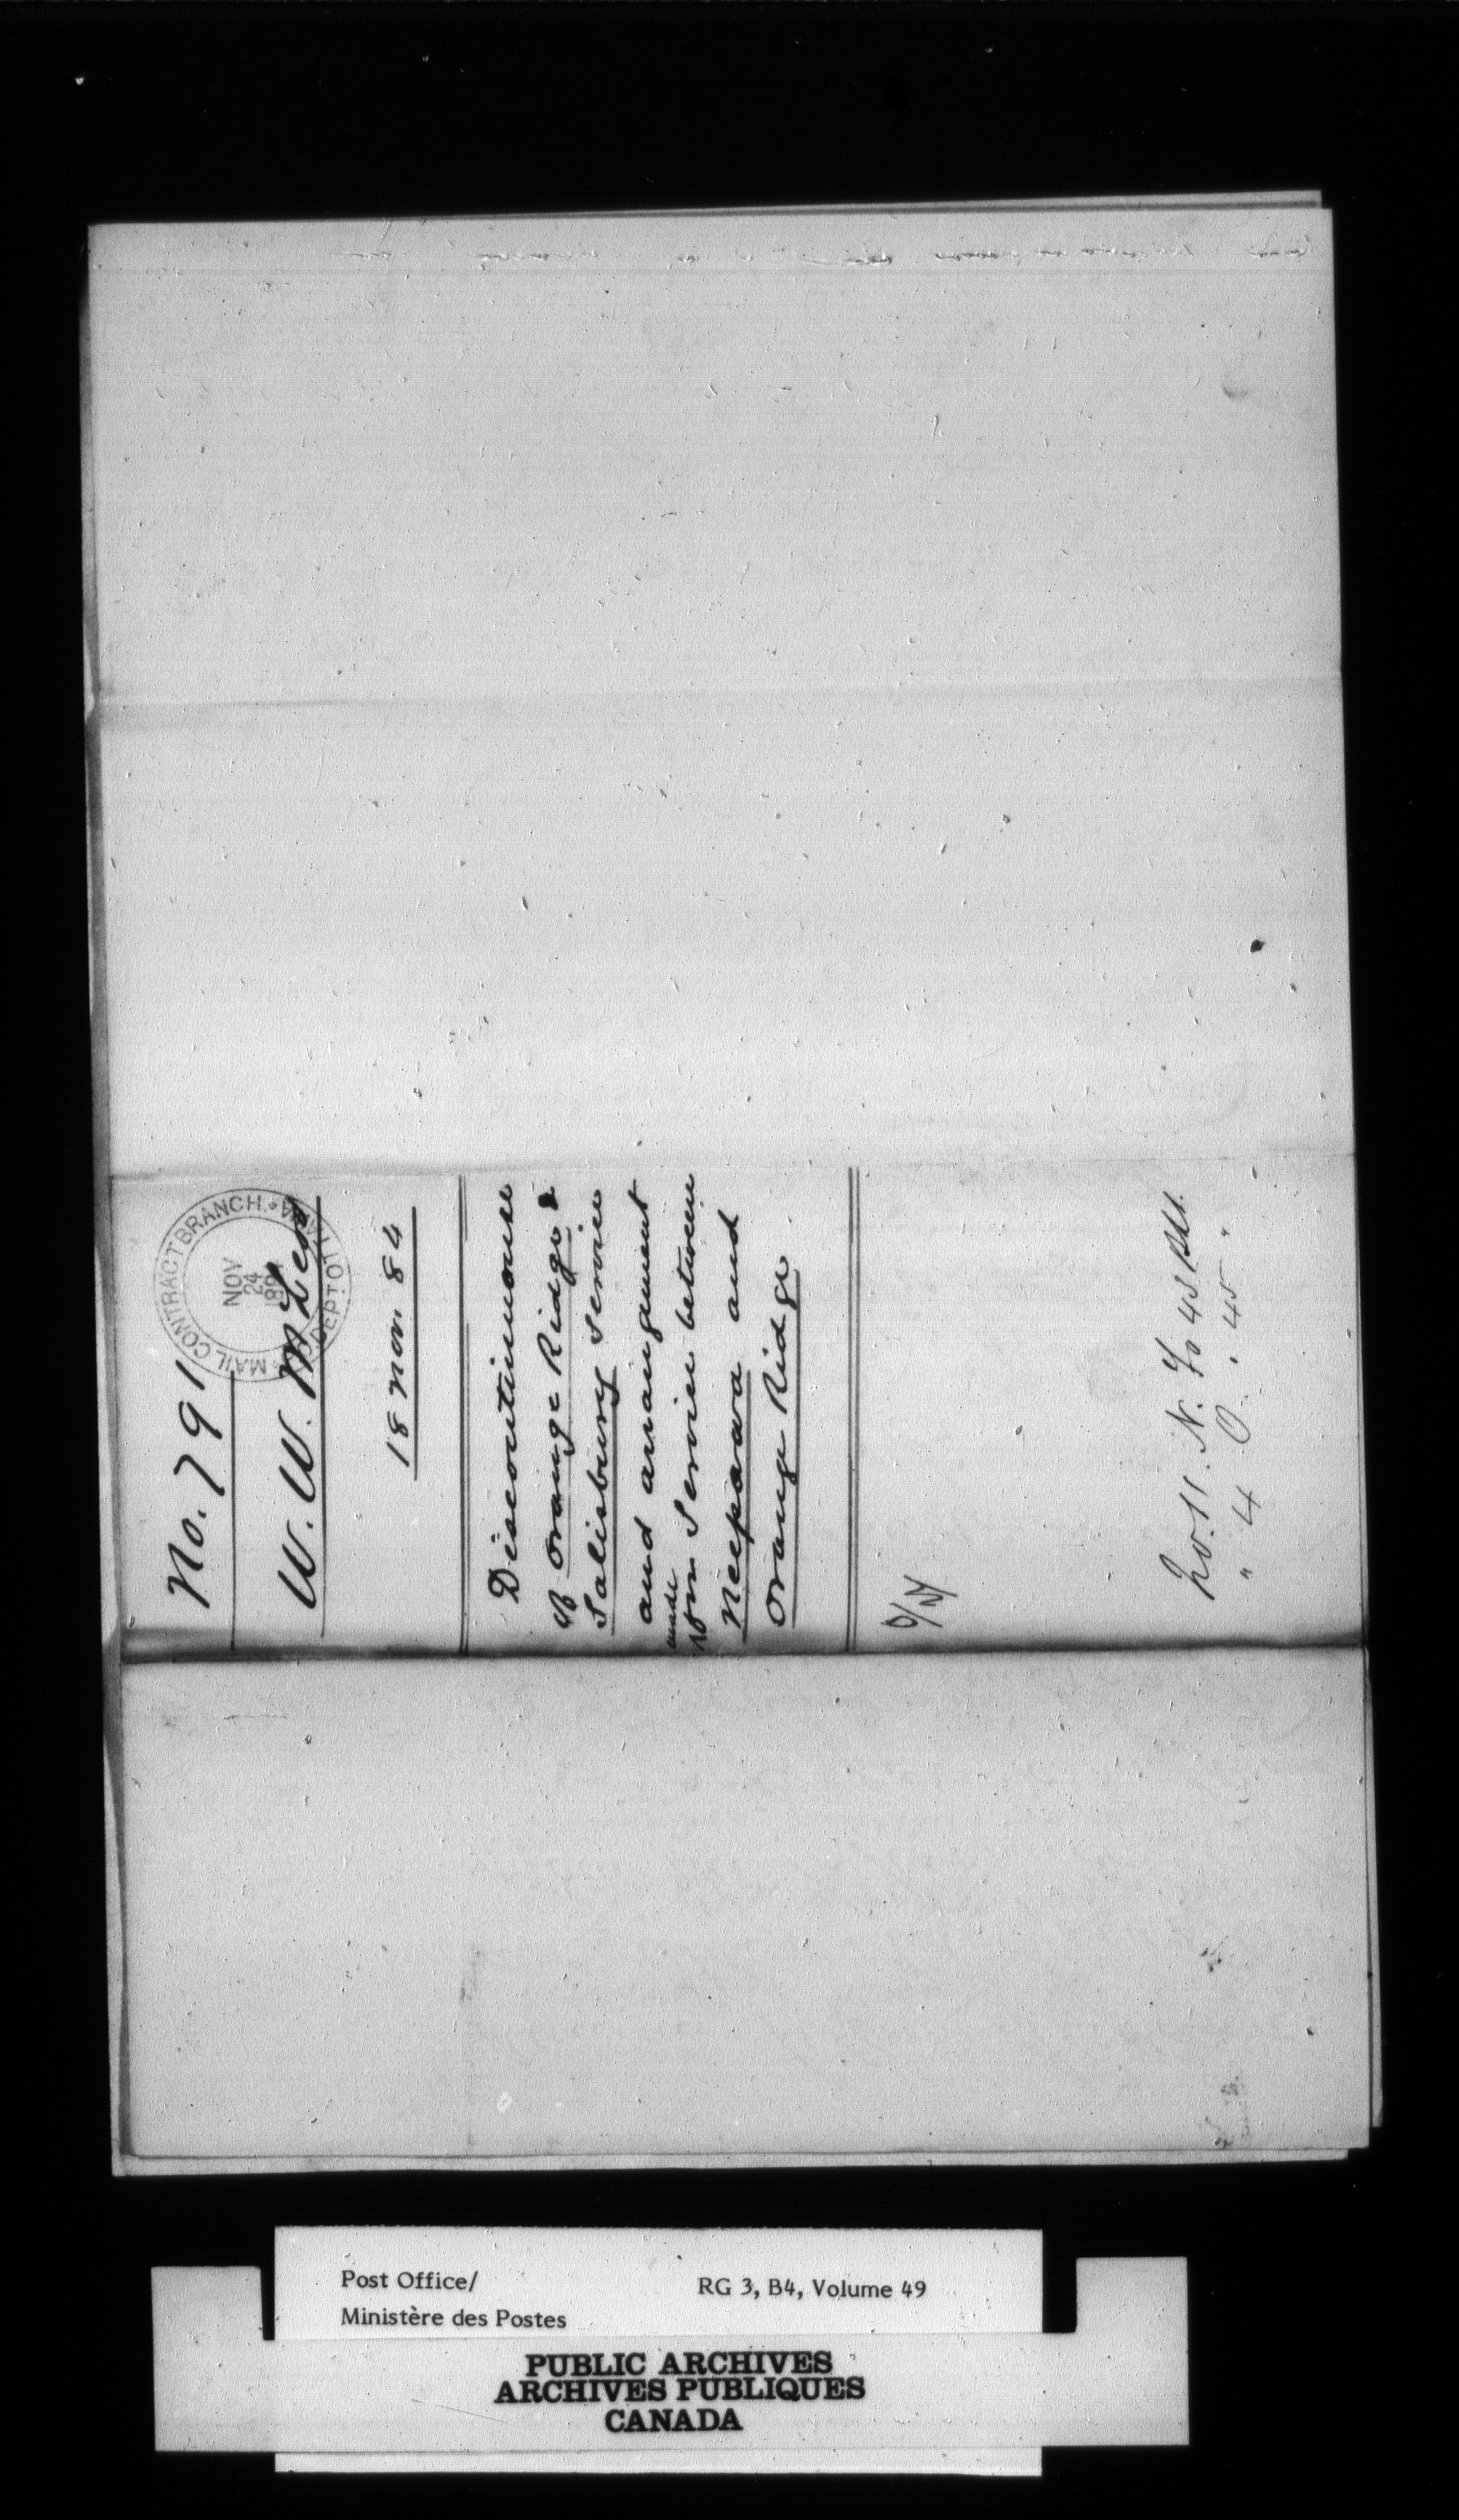 No. 791
MAIL CONTRACT BRANCH * P.O. DEPT OTTAWA *
NOV
24
W. W. McLeod
18 Nov. 84
Discontinuance
of Orange Ridge &
Salisbury service
and arrangement
made
for service between
Neepawa and
Orange Ridge
No. 11. N.
" 4 O. . 45 "
Post Office/
Ministère des Postes
RG 3, B4, Volume 49
PUBLIC ARCHIVES
ARCHIVES PUBLIQUES
CANADA